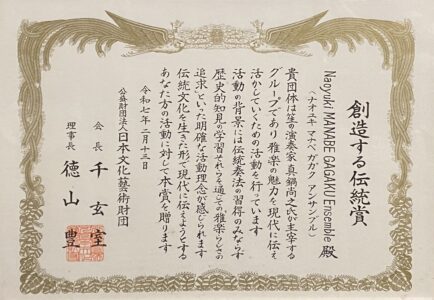 創造する伝統賞
Naoyuki MANABE GAGAKU Ensemble 殿
（ナオユキ マナベ ガガク アンサンブル）
貴団体は笙の演奏家 真鍋尚之氏が主宰する
グループであり 雅楽の魅力を現代に伝え
活かしていくための活動を行っています
活動の背景には伝統奏法の習得のみならず
歴史的知見の学習 それらを通しての“雅楽らしさの
追求”といった明確な活動理念が感じられます
伝統文化を生きた形で現代に伝えようとする
あなた方の活動に対して本賞を贈ります
令和七年二月十三日
公益財団法人日本文化藝術財団
会長 千玄室
理事長 徳山豊